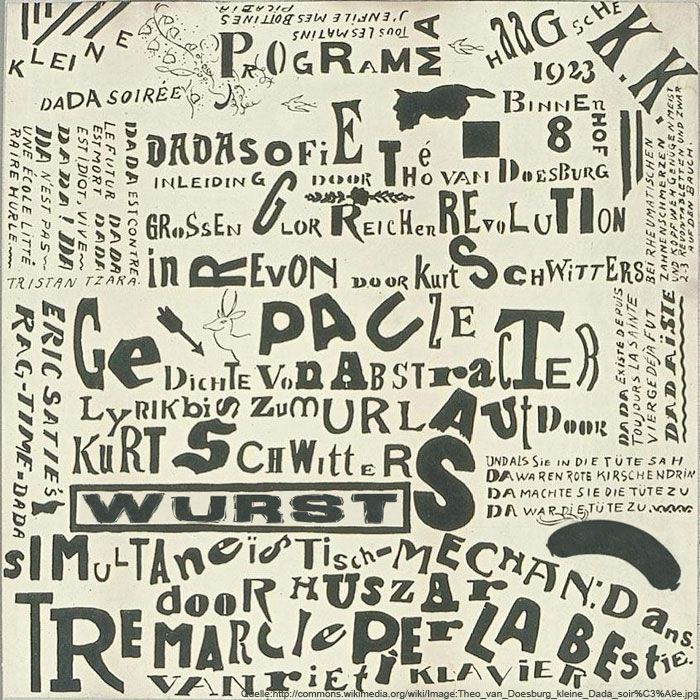 KLEINE
DADA SOIRÉE
PICABIA.
J'ENFILE MES BOTTINES
TOUS LES MATINS
PROGRAMMA
HAAGSCHE K.K.
1923
BINNENHOF 8
DADASOFIE
INLEIDING DOOR THÉO VAN DOESBURG
GROSSEN GLORREICHEN REVOLUTION
in REVON DOOR Kurt SCHWITTERS
PAUZE
GEDICHTE VON ABSTRACTER
LYRIK bis ZUM URLAUT DOOR
KURT SCHWITTERS
WURST
SIMULTANEÏSTISCH-MECHAN: DANS.
dooR HUSZAR
TRE MARCIE PER LA BESTIE.
VAN RIETI KLAVIER
DADA EST CONTRE
LE FUTUR DADA
EST MORT. DADA
EST IDIOT, VIVE
DADA! DADA
DA N'EST PAS
UNE ÉCOLE LITTÉ
RAIRE HURLE
TRISTAN TZARA.
ERIC SATIE'S
RAG-TIME=DADA
BEI RHEUMATISCHEN
ZAHNSCHMERZEN UND
DADA EXISTE DEPUIS
TOUJOURS LA SAINTE
VIERGE DÉJA FUT
DADAÏSTE
UND ALS SIE IN DIE TÜTE SAH
DA WAREN ROTE KIRSCHEN DRIN
DA MACHTE SIE DIE TÜTE ZU
DA WAR DIE TÜTE ZU.
Quelle:http://commons.wikimedia.org/wiki/Image:Theo_van_Doesburg_kleine_Dada_soir%C3%A9e.jpg